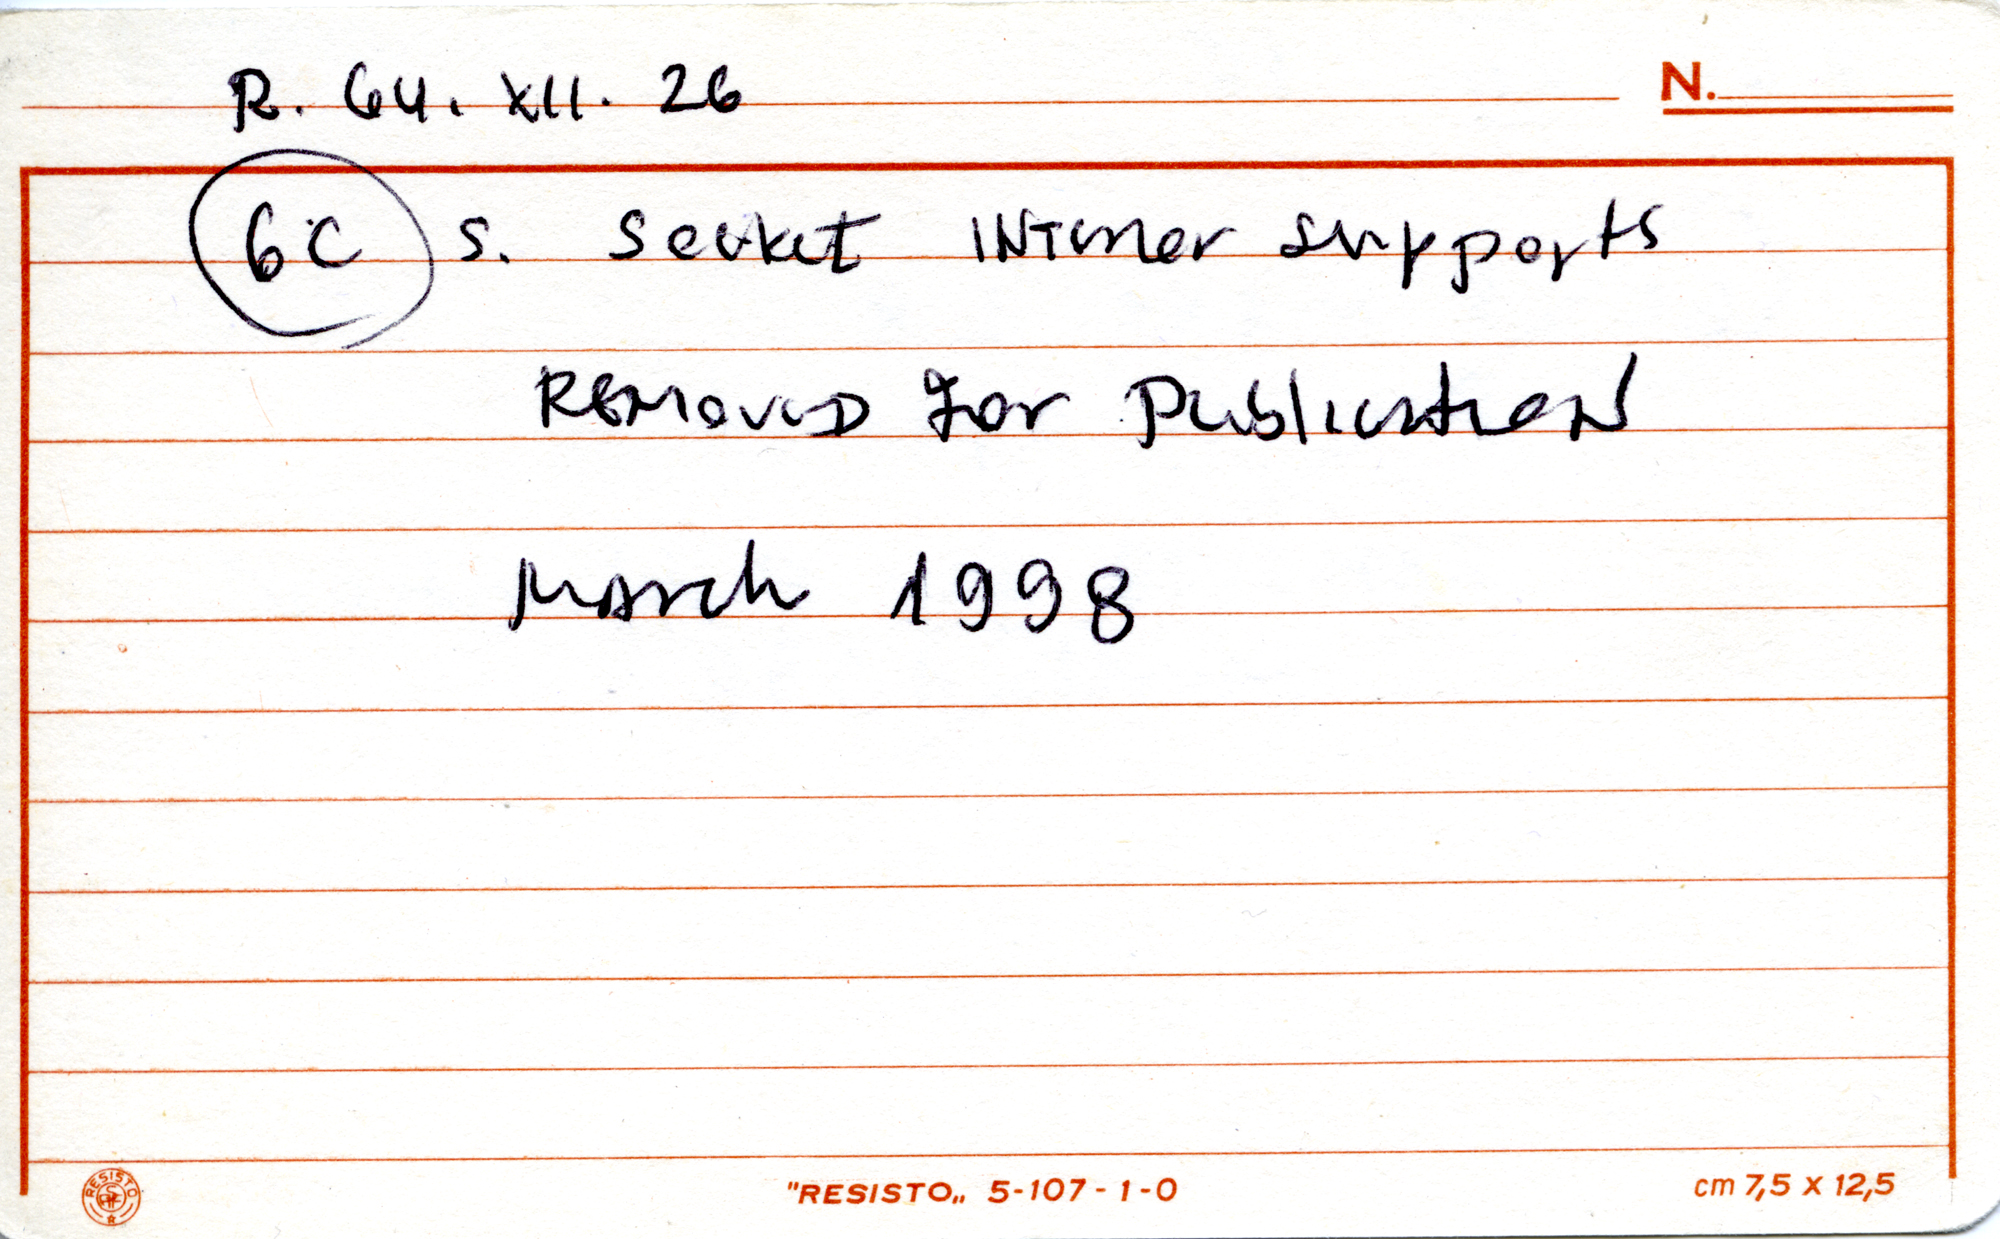 R. 64. XII. 26
N.
6c S. Sevket INTerior supports
REMOVED For Publication
March 1998
RESISTO
"RESISTO„ 5-107-1-0
cm 7,5 x 12,5